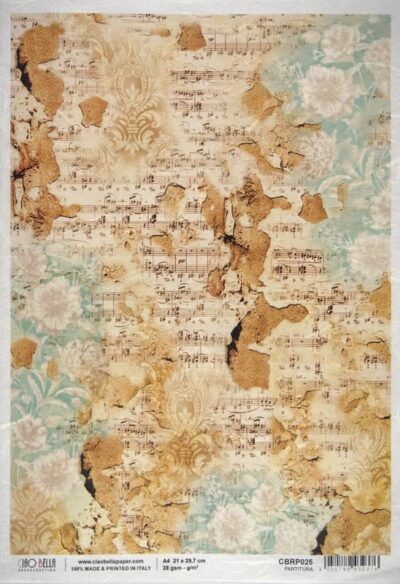 CIAO BELLA
PAPERCRAFTING
www.ciaobellapaper.com
100% MADE & PRINTED IN ITALY
A4 21 x 29,7 cm
28 gsm - g/m²
CBRP025
PARTITURA